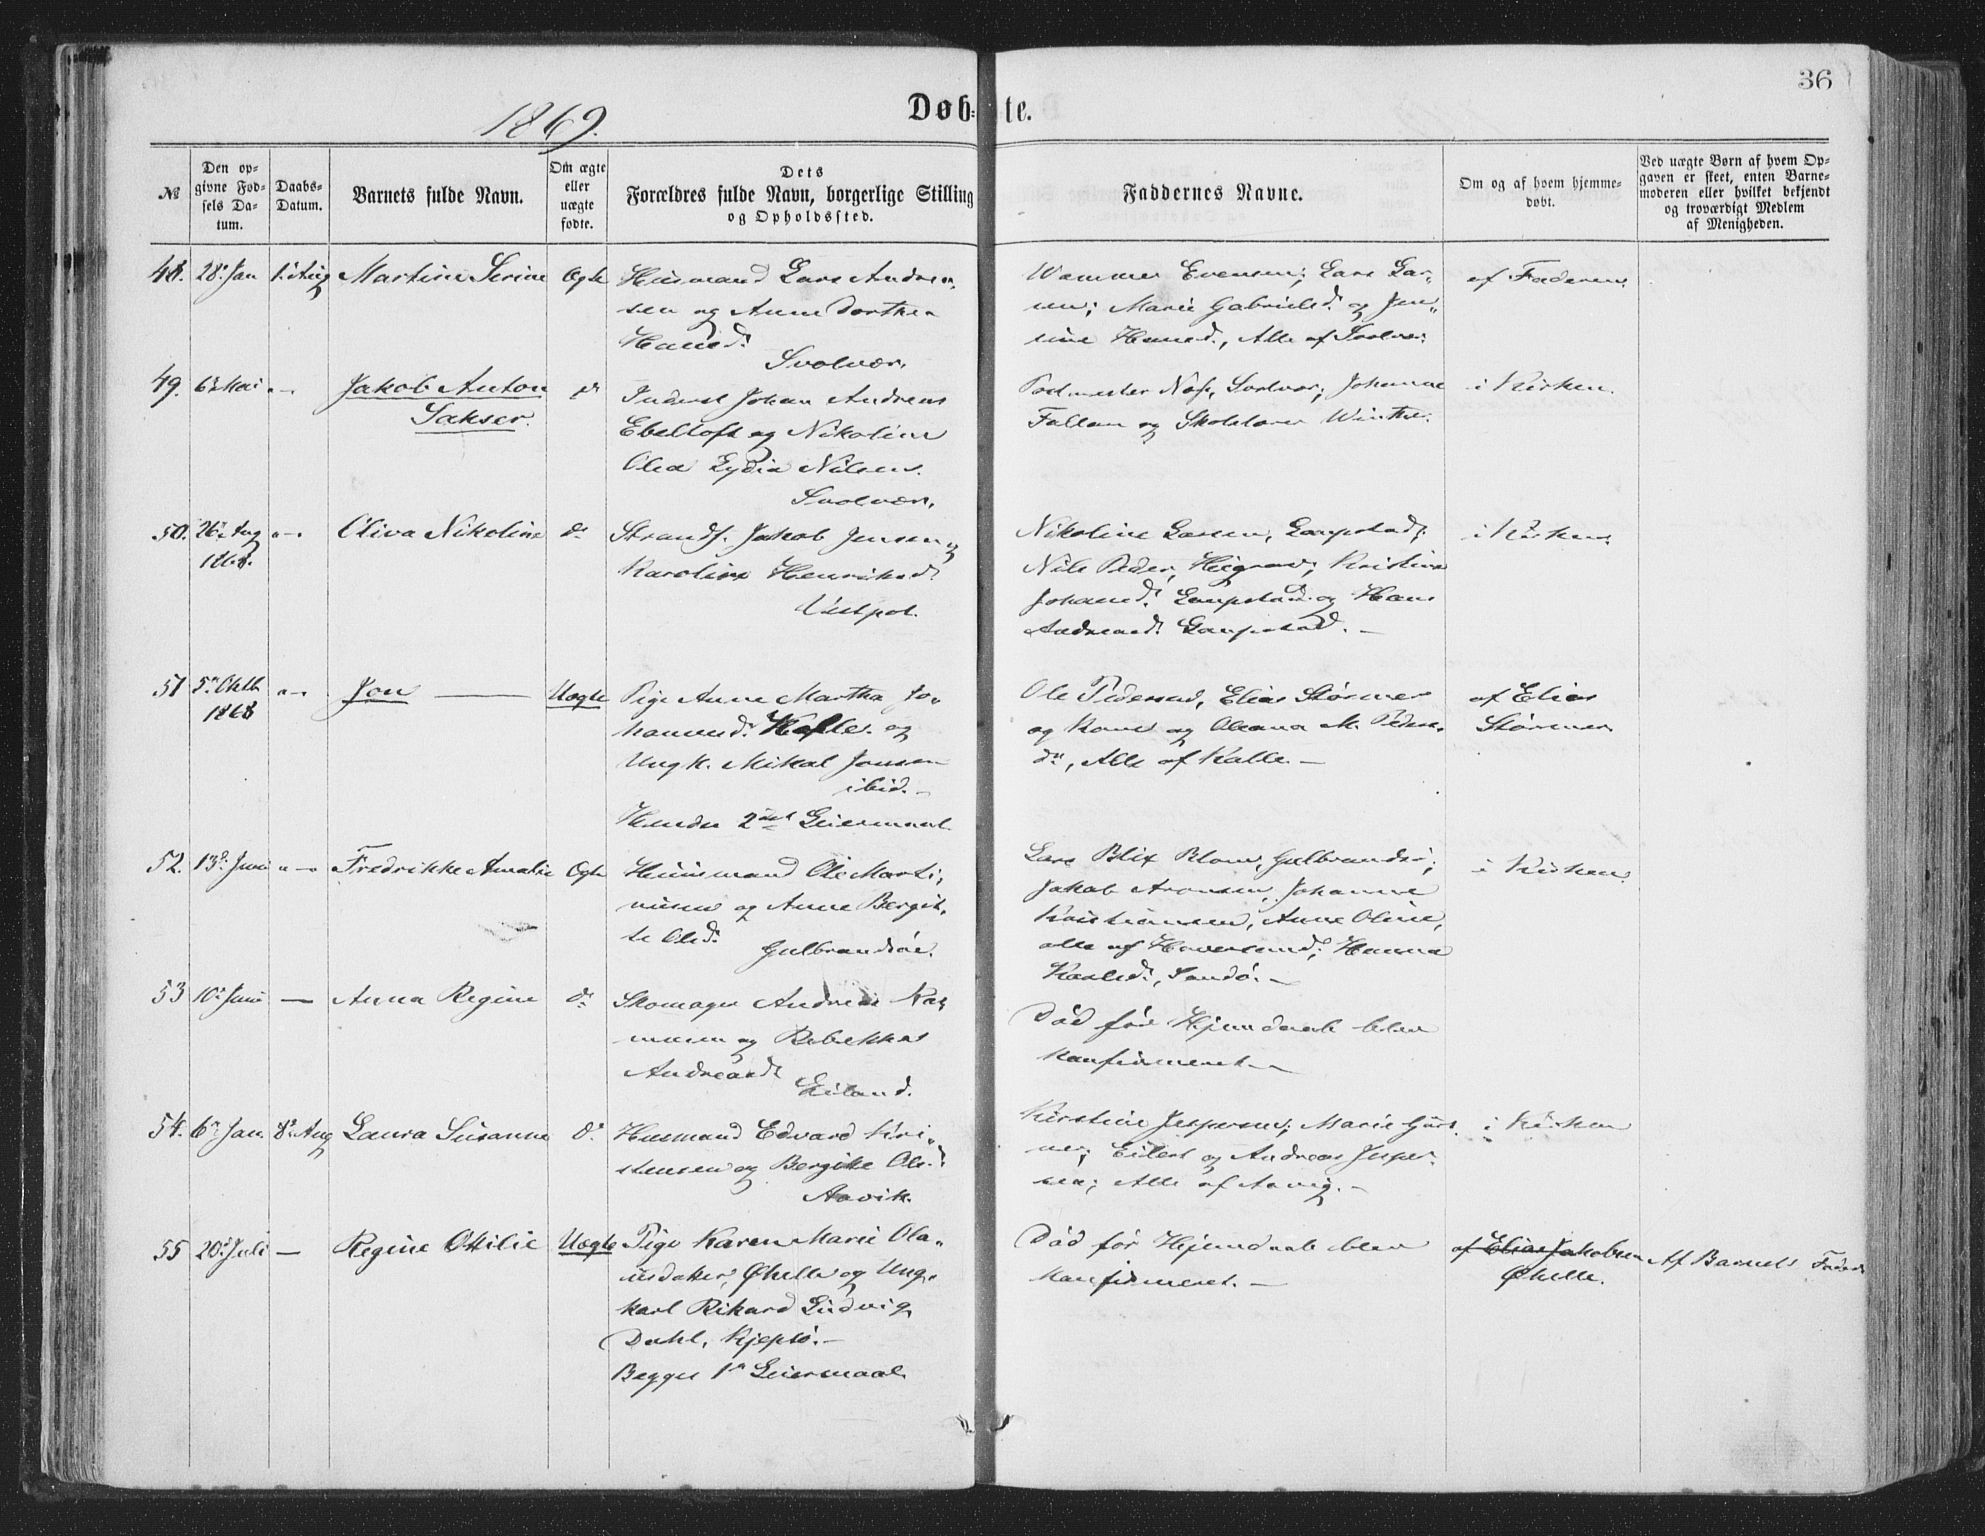 36
1869.
Døb- te.
№
Den op-
givne Fød-
sels Da-
tum.
Daabs-
Datum.
Barnets fulde Navn.
Om ægte
eller
uægte
fødte.
Dets
Forældres fulde Navn, borgerlige Stilling
og Opholdssted.
Faddernes Navne.
Om og af hvem hjemme-
døbt.
Ved uægte Børn af hvem Op-
gaven er skeet, enten Barne-
moderen eller hvilket bekjendt
og troværdigt Medlem
af Menigheden.
48. 28' Jan 1' Aug Martine Serine Ægte
Husmand Lars Andrea-
sen og Anne Dorthea
Hansd.
Svolvær.
Evensen; Lars Lar-
sen; Marie Gabrielsd. og Jen-
sine Hansd., Alle af Svolvær
af Faderen
49. 6' Mai Jakob Anton
Sakser.
Inderst Johan Andreas
Ebeltoft og Nikoline
Olea Lydia Nilsen.
Svolvær.
Postmester Svolvær; Johanna
og Skolelærer Winther
i Kirken.
50. 26' Aug
1868.
Oliva Nikoline do
Strands. Jakob Jensen og
Karoline Henriksd.
Vestpol.
Nikoline Larsen, Laupstad;
Nils Peder, Kristine
Johansd. Laupstad og Hans
Laupstad. —
i Kirken
51 5' Oktb
1868
Jon — Uægte
Pige Anne Martha Jo-
hannesd. Kalle. og
Ungk. Mikal Jonsen
ibid. —
Hendes 2det Leiermaal
Ole Pedersen, Elias Størmer
og Kone og Oleana M. Peders-
dr, Alle af Kalle. —
af Elias
Størmer
52. 13' Juni Fredrikke Amalie Ægte
Huusmand Ole Marti-
nusen og Anne Bergit-
te Olsd.
Gulbrandsøe.
Lars Blix Blom, Gulbrandsø;
Jakob Aronsen, Johanna
Kristiansen, Anne Oline,
alle af Hanna
Karlsd., Sandø. —
i Kirken
53 10' Juni — Anna Regine do
Skomager Andreas Ras-
musen og Rebekka
Andreasd.
Eiland.
Død før Hjemdaab blev
konfirmeret —
54. 6' Jan. 8' Aug Laura Susanne do
Husmand Edvard Kri-
stensen og Bergitte Ols.
Aavik.
Kirstine Jespersen; Marie
Eilert og Andreas Jesper-
sen; Alle af Aavig. —
i Kirken
55 20' Juli — Regine Ottilie Uægte
Pige Karen Marie Ola-
usdatter, Øhelle og Ung-
karl Rikard Ludvig
Dahl, Kjeøsø. —
Begges 1' Leiermaal
Død før Hjemdaab blev
konfirmeret. —
af Elias Jakobsen
Øhelle.
Af Barnets Fader